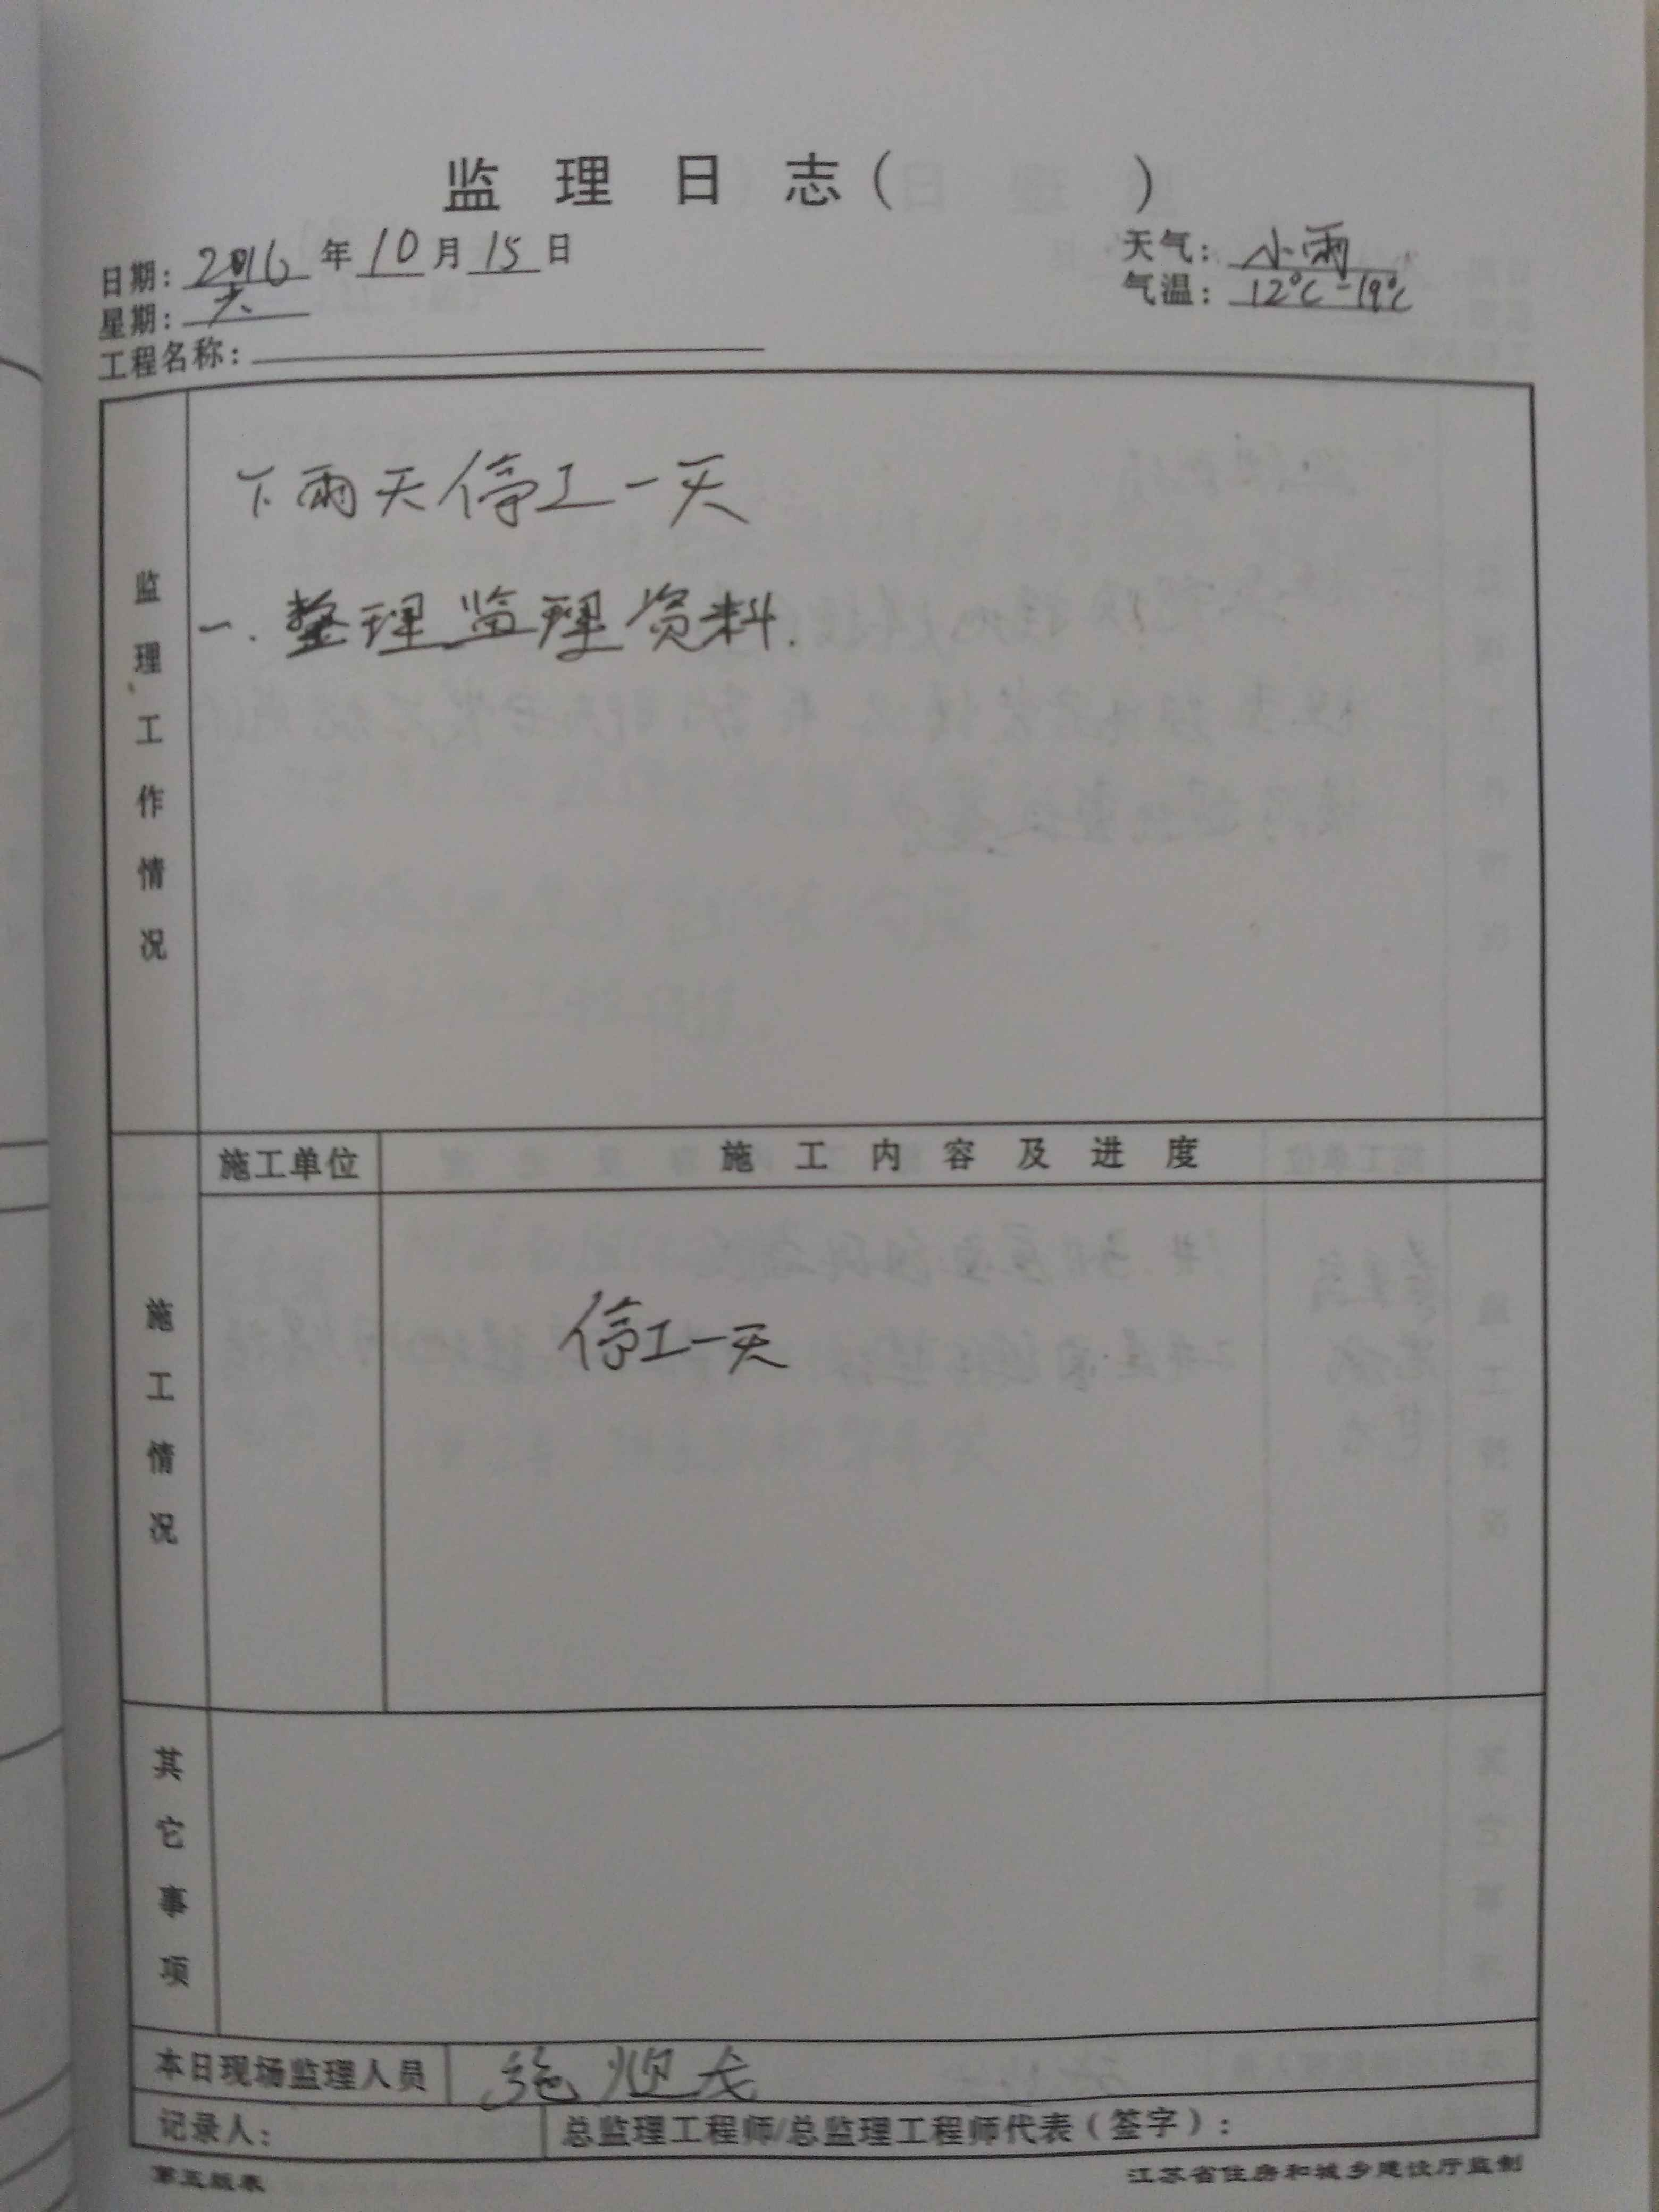 监理日志（ ）
日期：2016年10月15日
天气：小雨
星期：六
气温：12℃-19℃
工程名称：
监理工作情况
下雨天停工一天
一.整理监理资料.
施工情况
施工单位
施工内容及进度
停工一天
其它事项
本日现场监理人员
记录人：
总监理工程师/总监理工程师代表（签字）：
第五版表
江苏省住房和城乡建设厅监制